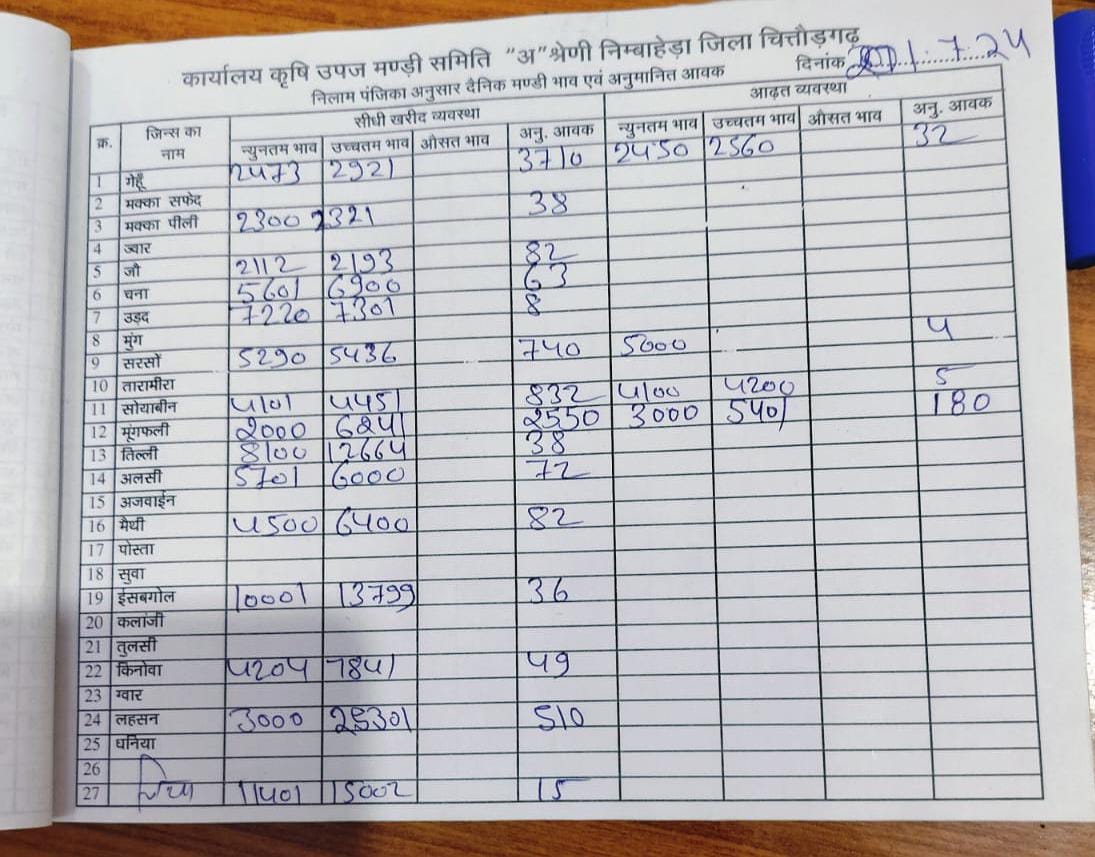 कार्यालय कृषि उपज मण्डी समिति "अ" श्रेणी निम्बाहेड़ा जिला चित्तौड़गढ़
निलाम पंजिका अनुसार दैनिक मण्डी भाव एवं अनुमानित आवक दिनांक 7.24
क्र. जिन्स का नाम सीधी खरीद व्यवस्था आढ़त व्यवस्था
न्युनतम भाव उच्चतम भाव औसत भाव अनु. आवक न्युनतम भाव उच्चतम भाव औसत भाव अनु. आवक
1 गेहूँ 2473 2921 3710 2450 2560 32
2 मक्का सफेद
3 मक्का पीली 2300 2321 38
4 ज्वार
5 जौ 2112 2193 82
6 चना 5601 6900 63
7 उड़द 7220 7301 8
8 मुंग
9 सरसों 5290 5436 740 5000 4
10 तारामीरा
11 सोयाबीन 4101 4451 832 4100 4200 5
12 मूंगफली 2000 6241 2550 3000 5401 180
13 तिल्ली 8100 12664 38
14 अलसी 5701 6000 72
15 अजवाईन
16 मैथी 4500 6400 82
17 पोस्ता
18 सुवा
19 ईसबगोल 10001 13799 36
20 कलांजी
21 तुलसी
22 किनोवा 4204 7841 49
23 ग्वार
24 लहसन 3000 25301 510
25 धनिया
26
27 चिया 11401 15002 15